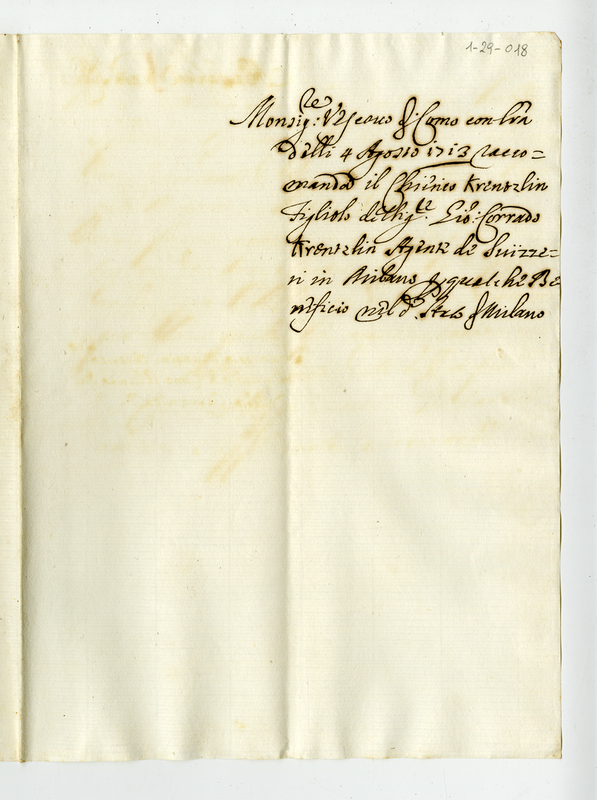 1-29-018
Monsig.re Vescovo di Como con l'ra
delli 4 Agosto 1713 racco=
manda il Chierico Krentzlin
Figliolo del Sig.re Gio: Corrado
Krentzlin Agente de Suizze=
ri in Milano p qualche Be
neficio nel d.o Stato di Milano